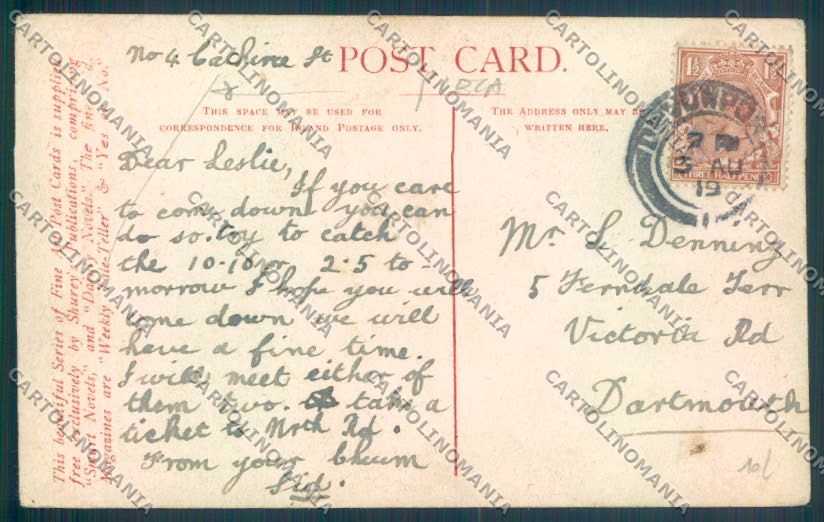 No 4 Cathince St
POST CARD.
BCA
THIS SPACE MAY BE USED FOR
CORRESPONDENCE FOR INLAND POSTAGE ONLY.
THE ADDRESS ONLY MAY BE
WRITTEN HERE.
Dear Leslie,
If you care
to come down you can
do so. try to catch
the 10-10 or 2.5 to-
morrow I hope you will
come down we will
have a fine time.
I will meet either of
them two. take a
ticket to Nrth Rd.
From your Chum
Sid.
Mr L Denning
5 Ferndale Terr
Victoria Rd
Dartmouth
1½ 1½
THREE HALFPENCE
DEVONPORT
5 AU
19
This beautiful Series of Fine Art Post Cards is supplied
free exclusively by Shurey's Publications, comprising
"Smart Novels," and "Dainty Novels." The finest
Magazines are "Weekly Tale-Teller" & "Yes or No."
CARTOLINOMANIA